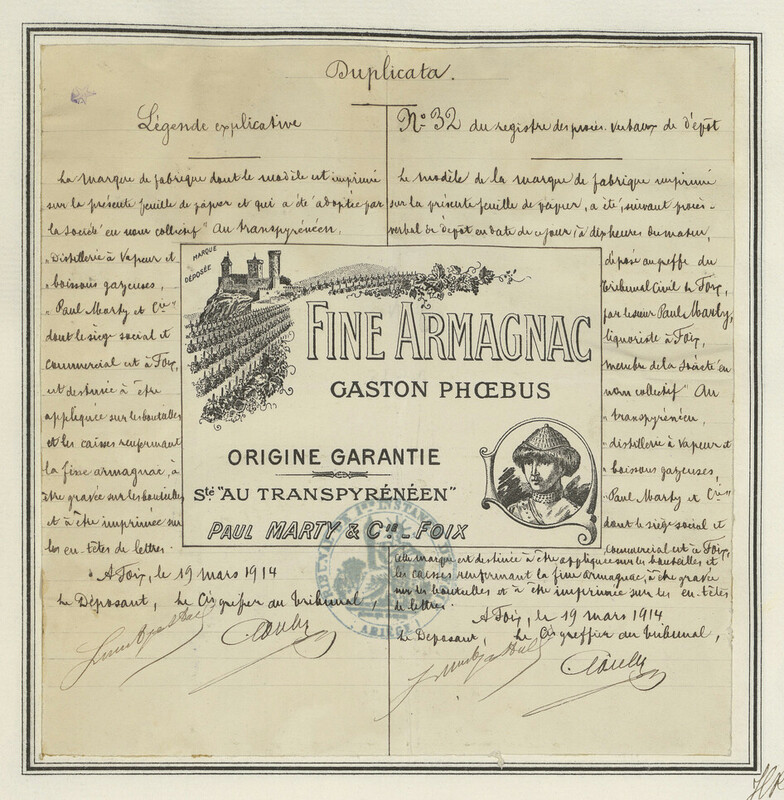 Duplicata.
Légende explicative
La marque de fabrique dont le modèle est imprimé
sur la présente feuille de papier et qui a été adoptée par
la société en nom collectif "Au transpyrénéen,
distillerie à Vapeur et
boissons gazeuses,
Paul Marty et Cie"
dont le siège social et
commercial est à Foix,
est destinée à être
appliquée sur les bouteilles
et les caisses renfermant
la fine armagnac, à
être gravée sur les bouteilles
et à être imprimée sur
les en-têtes de lettres.
A Foix, le 19 mars 1914
Le Déposant, Le Cis greffier du Tribunal,
No 32 du registre des procès-verbaux de dépôt
Le modèle de la marque de fabrique imprimé
sur la présente feuille de papier, a été, suivant procès-
verbal de dépôt en date de ce jour, à dix heures du matin,
déposé au greffe du
Tribunal Civil de Foix,
par le sieur Paul Marty,
liquoriste à Foix,
membre de la Société en
nom collectif "Au
transpyrénéen,
distillerie à Vapeur et
boissons gazeuses,
Paul Marty et Cie"
dont le siège social et
commercial est à Foix,
Cette marque est destinée à être appliquée sur les bouteilles et
les caisses renfermant la fine armagnac, à être gravée
sur les bouteilles et à être imprimée sur les en-têtes
de lettres.
A Foix, le 19 mars 1914
Le Déposant, Le Cis greffier du Tribunal,
MARQUE
DÉPOSÉE
FINE ARMAGNAC
GASTON PHŒBUS
ORIGINE GARANTIE
Sté "AU TRANSPYRÉNÉEN"
PAUL MARTY & CIE - FOIX
TRIBUNAL DE 1RE INSTANCE
ARIÈGE